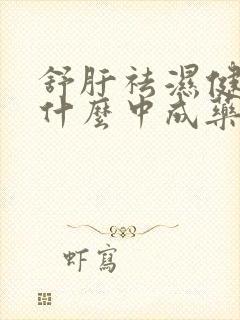 舒肝祛濕健
什麼中成藥
虾寫